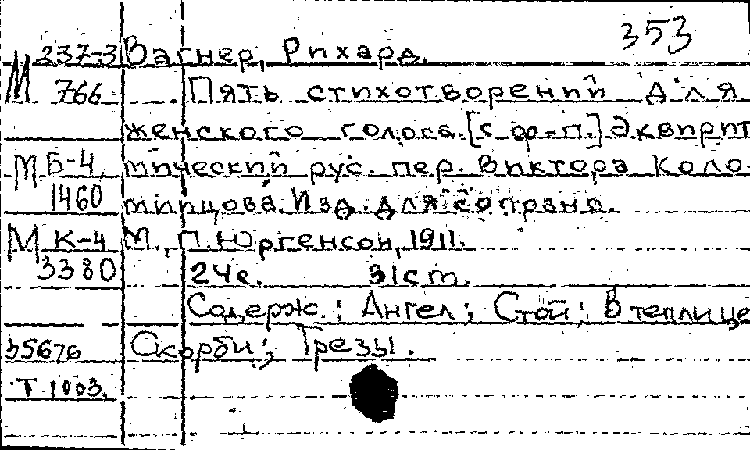 353
М 237-3 Вагнер, Рихард.
766 Пять стихотворений для
женского голоса [с ф-п.] Эквирит
М Б-4 мический рус. пер. Виктора Коло
1460 мийцова. Изд. для сопрано.
М К-4 М., П. Юргенсон, 1911.
3380 24с. 31см.
Содерж.: Ангел; Стой; В теплице
35676 Скорби; Грезы.
Т 1003.